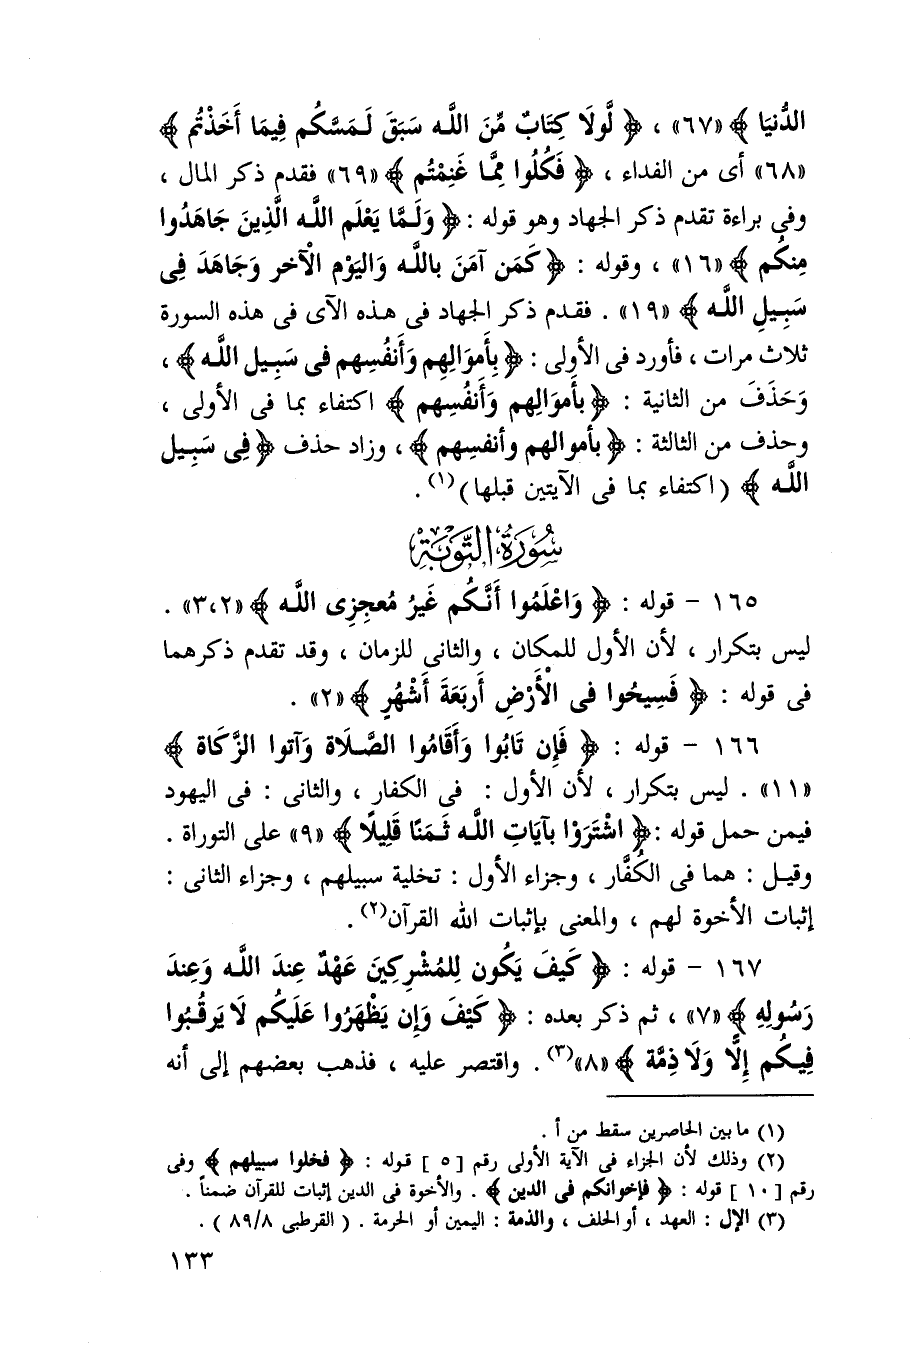 الدُّنيَا ﴾ «٦٧» ، ﴿ لَّولَا كِتَابٌ مِّنَ اللَّه سَبَقَ لَـمَسَّكُم فِيمَا أَخَذْتُم ﴾
«٦٨» أى من الفداء ، ﴿ فَكُلُوا مِمَّا غَنِمْتُم ﴾ «٦٩» فقدم ذكر المال ،
وفى براءة تقدم ذكر الجهاد وهو قوله : ﴿ وَلَـمَّا يَعْلَم اللَّه الَّذِينَ جَاهَدُوا
مِنكُم ﴾ «١٦» ، وقوله : ﴿ كَمَن آمَنَ باللَّه وَاليَوْم الْآخر وَجَاهَدَ فِى
سَبِيلِ اللَّه ﴾ «١٩» . فقدم ذكر الجهاد فى هذه الآى فى هذه السورة
ثلاث مرات ، فأورد فى الأولى : ﴿ بِأَموَالِهم وَأَنفُسِهم فى سَبِيل اللَّه ﴾ ،
وَحَذَفَ من الثانية : ﴿ بأَموَالِهم وَأَنفُسِهم ﴾ اكتفاء بما فى الأولى ،
وحذف من الثالثة : ﴿ بأموالهم وأنفسِهم ﴾ ، وزاد حذف ﴿ فِى سَبِيل
اللَّه ﴾ (اكتفاء بما فى الآيتين قبلها)(١) .
سُورَةُ التَّوبَةِ
١٦٥ – قوله : ﴿ وَاعْلَمُوا أَنَّكُم غَيرُ مُعجِزِى اللَّه ﴾ «٣،٢» .
ليس بتكرار ، لأن الأول للمكان ، والثانى للزمان ، وقد تقدم ذكرهما
فى قوله : ﴿ فَسِيحُوا فى الْأَرْضِ أَربَعَةَ أَشْهُرٍ ﴾ «٢» .
١٦٦ – قوله : ﴿ فَإِن تَابُوا وَأَقَامُوا الصَّلَاة وَآتوا الزَّكَاة ﴾
«١١» . ليس بتكرار ، لأن الأول : فى الكفار ، والثانى : فى اليهود
فيمن حمل قوله :﴿ اشْتَرَوْا بآيَاتِ اللَّه ثَـمَنًا قَلِيلًا ﴾ «٩» على التوراة .
وقيل : هما فى الكُفَّار ، وجزاء الأول : تخلية سبيلهم ، وجزاء الثانى :
إثبات الأخوة لهم ، والمعنى بإثبات الله القرآن(٢) .
١٦٧ – قوله : ﴿ كَيفَ يَكُون لِلمُشْرِكِينَ عَهْدٌ عِندَ اللَّه وَعِندَ
رَسُولِهِ ﴾ «٧» ، ثم ذكر بعده : ﴿ كَيْفَ وَإِن يَظْهَرُوا عَلَيكُم لَا يَرقُبُوا
فِيكُم إِلًّا وَلَا ذِمَّة ﴾ «٨»(٣) . واقتصر عليه ، فذهب بعضهم إلى أنه
(١) ما بين الحاصرين سقط من أ .
(٢) وذلك لأن الجزاء فى الآية الأولى رقم [ ٥ ] قوله : ﴿ فخلوا سبيلهم ﴾ وفى
رقم [ ١٠ ] قوله : ﴿ فإخوانكم فى الدين ﴾ . والأخوة فى الدين إثبات للقرآن ضمناً .
(٣) الإل : العهد ، أو الحلف ، والذمة : اليمين أو الحرمة . ( القرطبى ٨٩/٨ ) .
١٣٣